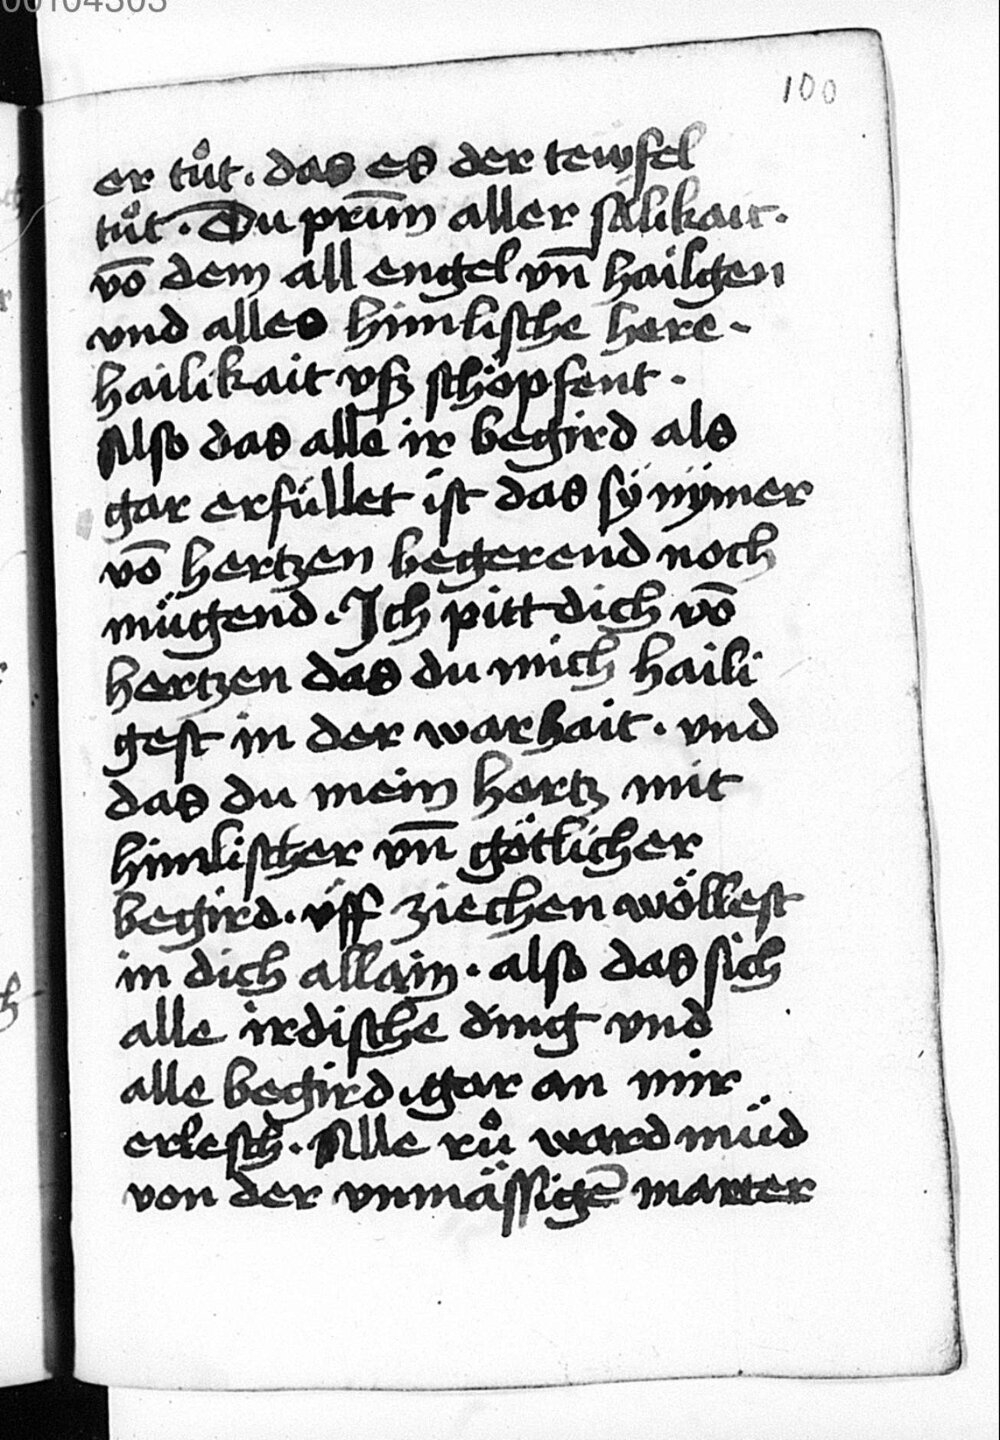 00104303
100
er tuͦt. das es der tewfel
tuͦt. Du prūn aller sälikait.
vō dem all engel vn̄ hailgen
vnd alles himlische here
hailikait vß schöpfent.
Also das alle ir begird als
gar erfüllet ist das sÿ nÿmer
vō hertzen begerend noch
mügend. Ich pitt dich vō
hertzen das du mich haili
gest in der warhait. vnd
das du mein hertz mit
himlischer vn̄ götlicher
begird. vff ziechen wöllest
in dich allain. also das sich
alle irdische ding vnd
alle begird. gar an mir
erlesch. Alle ruͦ ward müd
von der vnmässigē marter